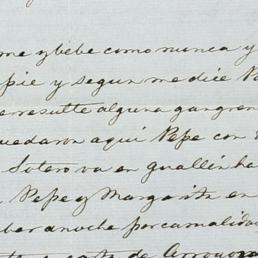 me y bebe como nunca y
pie y segun me dice
resulte alguna gangren
uedaron aqui Pepe con
Sotero va en
Pepe y Margarita en
anoche por
de